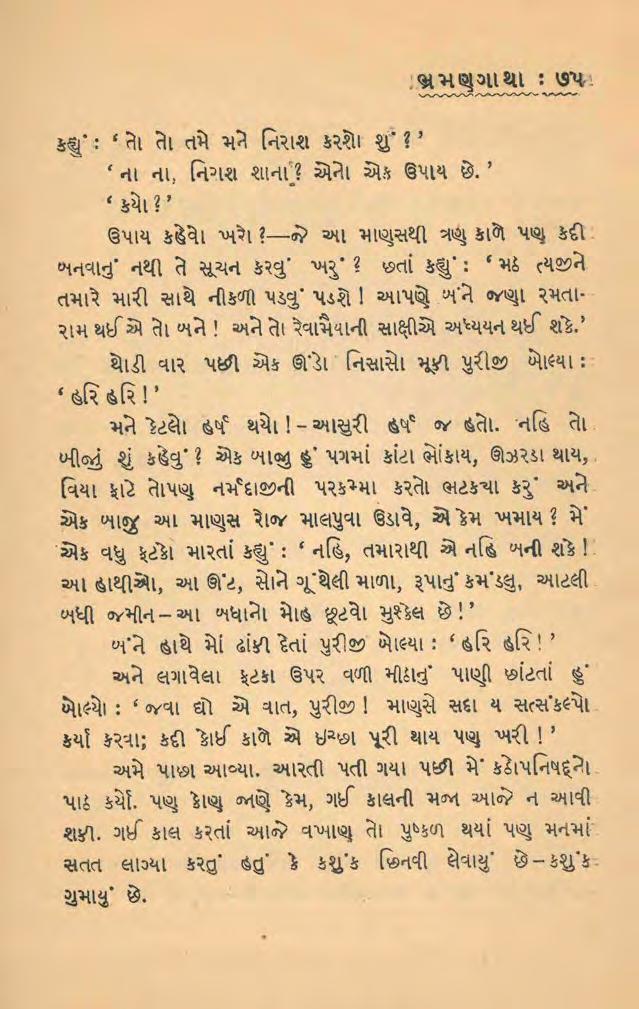 ભ્રમણગાથા : ૭૫
કહ્યું : ‘તો તો તમે મને નિરાશ કરશો શું ?’
‘ના ના, નિરાશ શાના ? એનો એક ઉપાય છે.’
‘કયો ?’
ઉપાય કહેવો ખરો ?—જે આ માણસથી ત્રણ કાળે પણ કદી
બનવાનું નથી તે સૂચન કરવું ખરું ? છતાં કહ્યું : ‘મઠ ત્યજીને
તમારે મારી સાથે નીકળી પડવું પડશે ! આપણે બંને જણા રમતા-
રામ થઈએ તો બને ! અને તો રેવામૈયાની સાક્ષીએ અધ્યયન થઈ શકે.’
થોડી વાર પછી એક ઊંડો નિસાસો મૂકી પુરીજી બોલ્યા :
‘હરિ હરિ !’
મને કેટલો હર્ષ થયો ! – આસુરી હર્ષ જ હતો. નહિ તો
બીજું શું કહેવું ? એક બાજુ હું પગમાં કાંટા ભોંકાય, ઊઝરડા થાય,
વિયા ફાટે તોપણ નર્મદાજીની પરકમ્મા કરતો ભટક્યા કરું અને
એક બાજુ આ માણસ રોજ માલપુવા ઉડાવે, એ કેમ ખમાય ? મેં
એક વધુ ફટકો મારતાં કહ્યું : ‘નહિ, તમારાથી એ નહિ બની શકે !
આ હાથીઓ, આ ઊંટ, સોને ગૂંથેલી માળા, રૂપાનું કમંડલુ, આટલી
બધી જમીન – આ બધાનો મોહ છૂટવો મુશ્કેલ છે !’
બંને હાથે મોં ઢાંકી દેતાં પુરીજી બોલ્યા : ‘હરિ હરિ !’
અને લગાવેલા ફટકા ઉપર વળી મીઠાનું પાણી છાંટતાં હું
બોલ્યો : ‘જવા દ્યો એ વાત, પુરીજી ! માણસે સદા ય સત્સંકલ્પો
કર્યા કરવા; કદી કોઈ કાળે એ ઇચ્છા પૂરી થાય પણ ખરી !’
અમે પાછા આવ્યા. આરતી પતી ગયા પછી મેં કઠોપનિષદ્‌નો
પાઠ કર્યો. પણ કોણ જાણે કેમ, ગઈ કાલની મજા આજે ન આવી
શકી. ગઈ કાલ કરતાં આજે વખાણ તો પુષ્કળ થયાં પણ મનમાં
સતત લાગ્યા કરતું હતું કે કશુંક છિનવી લેવાયું છે – કશુંક
ગુમાયું છે.